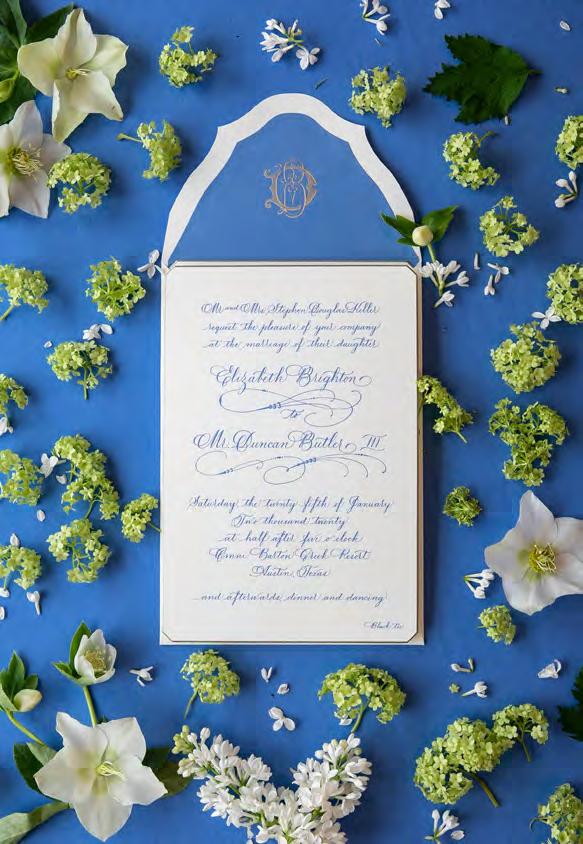 Mr and Mrs Stephen Douglas Keller
request the pleasure of your company
at the marriage of their daughter
Elizabeth Brighton
to
Mr. Duncan Butler, III
Saturday, the twenty fifth of January
Two thousand twenty
at half after five o'clock
Omni Barton Creek Resort
Austin, Texas
and afterwards, dinner and dancing
Black Tie